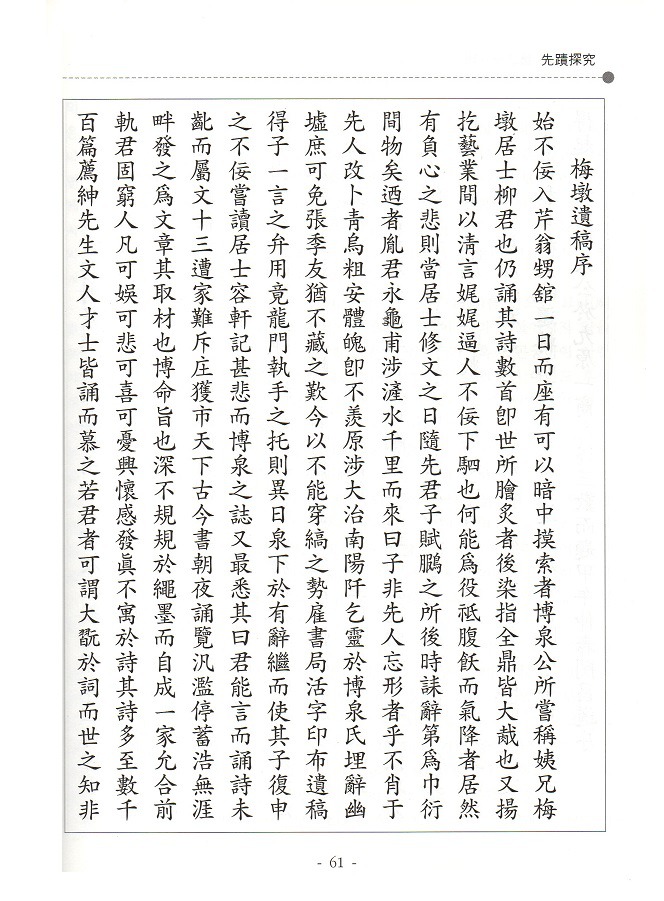 先蹟探究
梅墩遺稿序
始不佞入芹翁甥舘一日而座有可以暗中摸索者博泉公所嘗稱姨兄梅
墩居士柳君也仍誦其詩數首卽世所膾炙者後染指全鼎皆大胾也又揚
扢藝業間以清言娓娓逼人不佞下駟也何能爲役祗腹飫而氣降者居然
有負心之悲則當居士修文之日隨先君子賦鵩之所後時誄辭第爲巾衍
間物矣迺者胤君永龜甫涉滻水千里而來曰子非先人忘形者乎不肖于
先人改卜青烏粗安體魄卽不羨原涉大治南陽阡乞靈於博泉氏埋辭幽
墟庶可免張季友猶不藏之歎今以不能穿縞之勢雇書局活字印布遺稿
得子一言之弁用竟龍門執手之托則異日泉下於有辭繼而使其子復申
之不佞嘗讀居士容軒記甚悲而博泉之誌又最悉其曰君能言而誦詩未
齔而屬文十三遭家難斥庄獲市天下古今書朝夜誦覽汎濫停蓄浩無涯
畔發之爲文章其取材也博命旨也深不規規於繩墨而自成一家允合前
軌君固窮人凡可娛可悲可喜可憂興懷感發眞不寓於詩其詩多至數千
百篇薦紳先生文人才士皆誦而慕之若君者可謂大翫於詞而世之知非
- 61 -